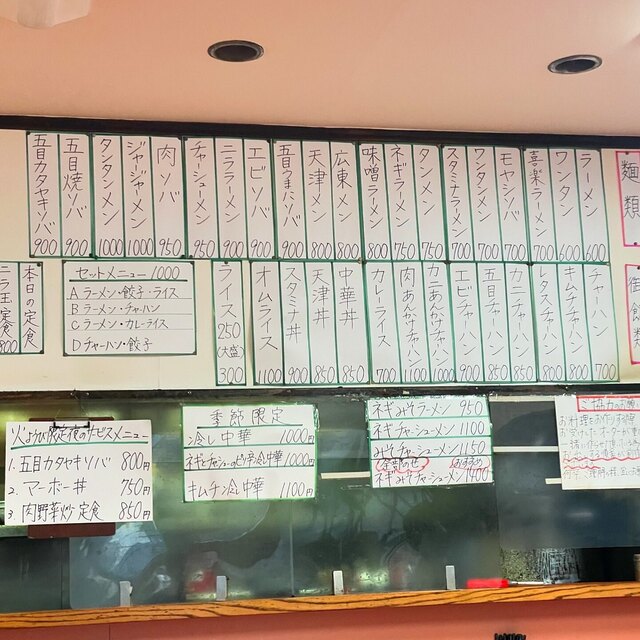 麺類
ラーメン 600
ワンタン 600
喜楽ラーメン 700
モヤシソバ 700
ワンタンメン 700
スタミナラーメン 700
タンメン 750
ネギラーメン 750
味噌ラーメン 800
広東メン 800
天津メン 800
五目うまにソバ 900
エビソバ 900
ニララーメン 900
チャーシューメン 950
肉ソバ 950
ジャージャーメン 1000
タンタンメン 1000
五目焼ソバ 900
五目カタヤキソバ 900
御飯類
チャーハン 700
キムチチャーハン 800
レタスチャーハン 800
カニチャーハン 850
五目チャーハン 850
エビチャーハン 850
カニあんかけチャーハン 1000
肉あんかけチャーハン 1100
カレーライス 700
中華丼 850
天津丼 850
スタミナ丼 900
オムライス 1100
ライス 250
(大盛) 300
セットメニュー 1000
A ラーメン・餃子・ライス
B ラーメン・チャーハン
C ラーメン・カレーライス
D チャーハン・餃子
本日の定食
ニラ玉定食 800
火ようび限定夜のサービスメニュー
1. 五目カタヤキソバ 800円
2. マーボー丼 750円
3. 肉野菜炒定食 850円
季節限定
冷し中華 1000円
キムチ冷し中華 1100円
ネギみそラーメン 950
ネギチャーシューメン 1100
みそチャーシューメン 1150
全部のせ おすすめ
ネギみそチャーシューメン 1400